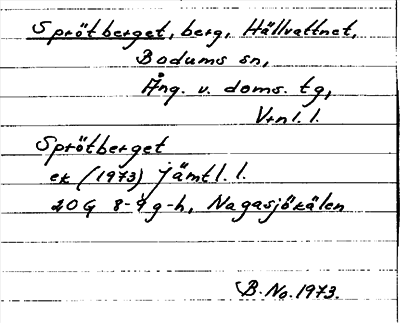 Sprötberget, berg, Hällvattnet,
Bodums sn,
Ång. v. doms. tg,
Vrnl. l.
Sprötberget
ek (1973) Jämtl. l.
20G 8-9 g-h, Nagasjökälen
B. No. 1973.